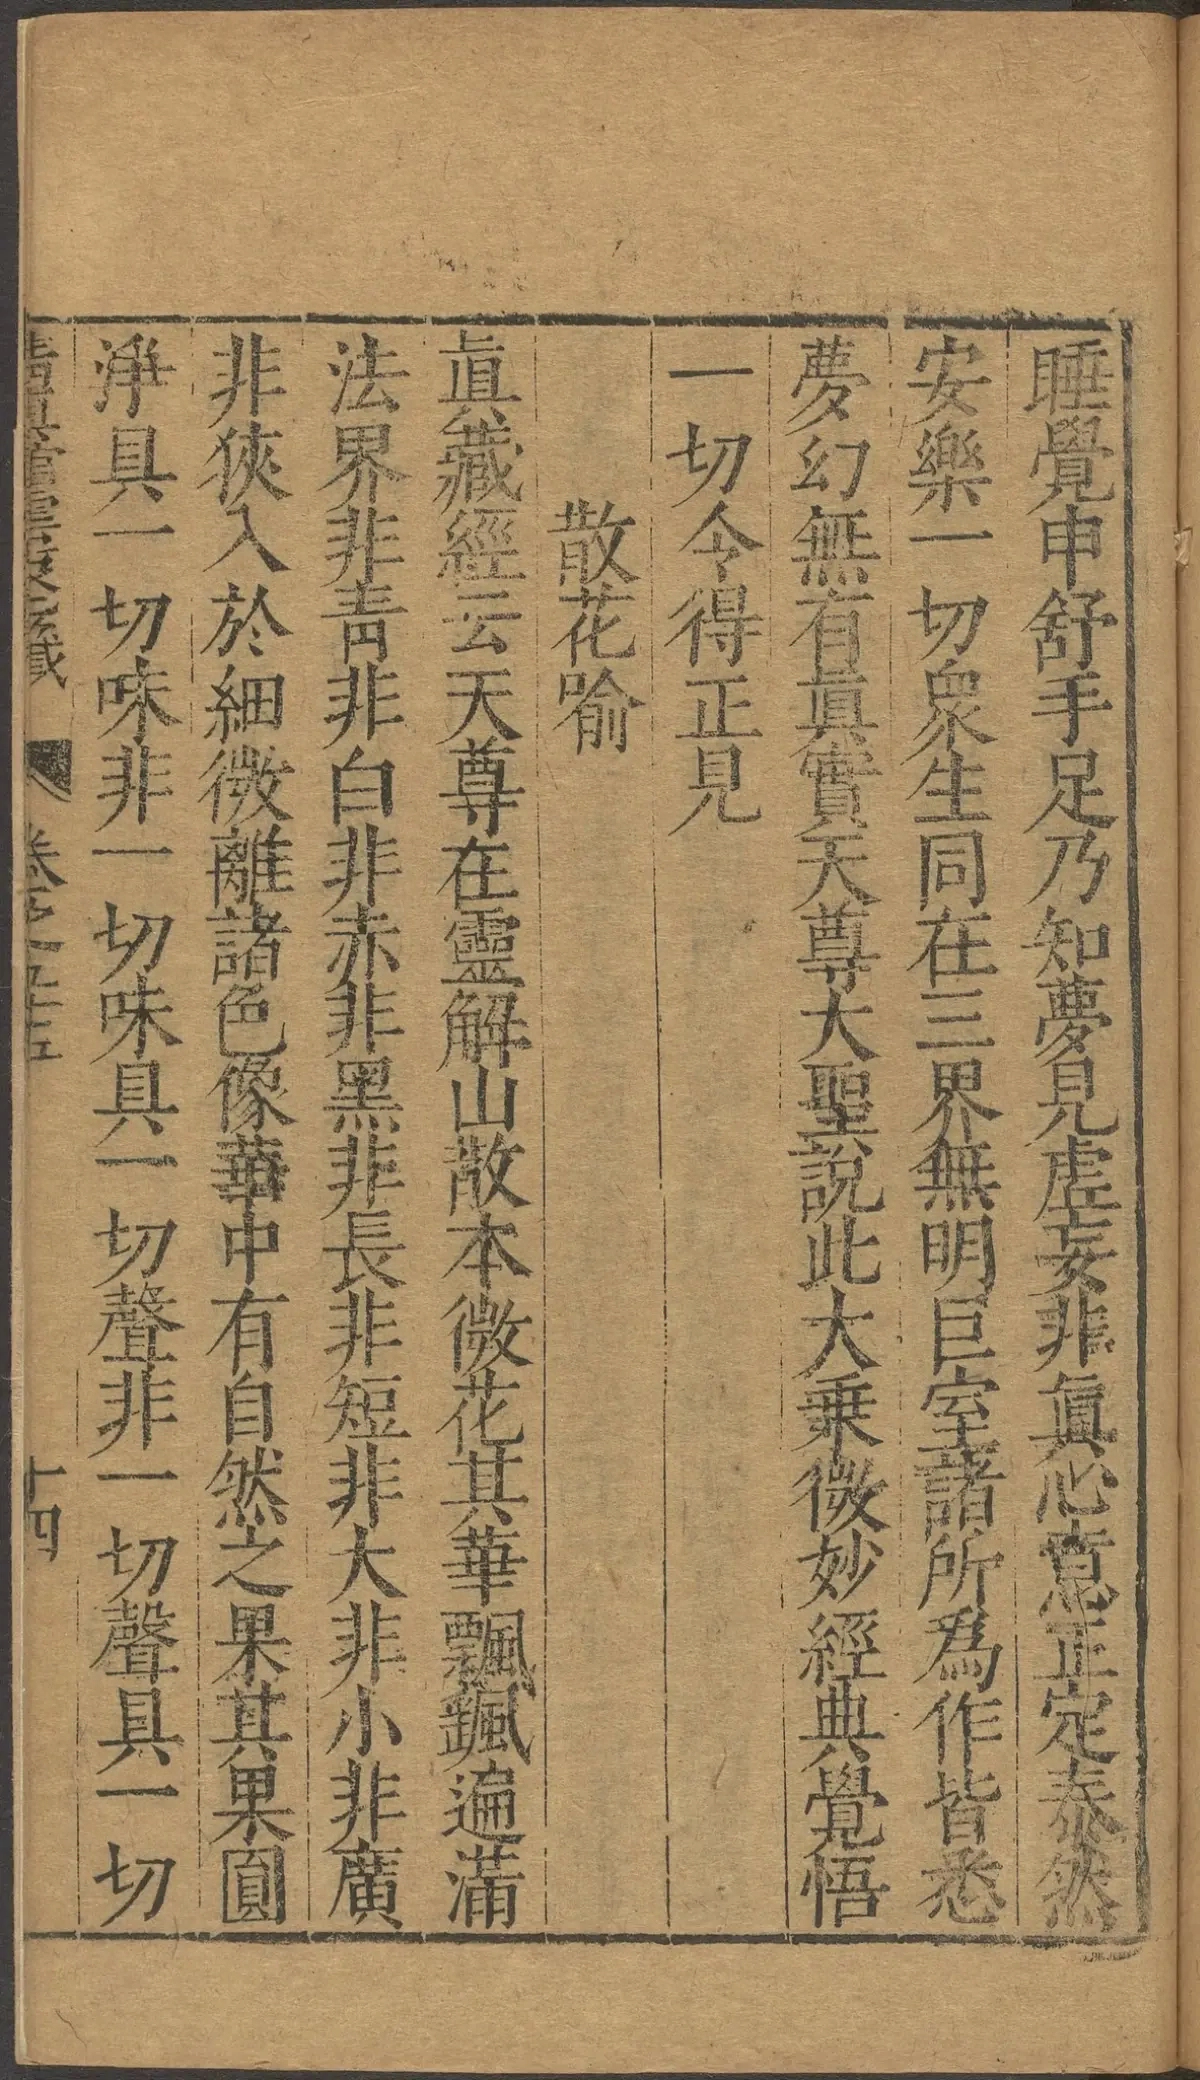 睡覺申舒手足乃知夢見虛妄非眞心意正定泰然
安樂一切衆生同在三界無明巨室諸所爲作皆悉
夢幻無有眞實天尊大聖說此大乘微妙經典覺悟
一切令得正見
散花喻
眞藏經云天尊在靈解山散本微花其華飄颻遍滿
法界非靑非白非赤非黑非長非短非大非小非廣
非狹入於細微離諸色像華中有自然之果其果圓
淨具一切味非一切味具一切聲非一切聲具一切
卷之五
十四